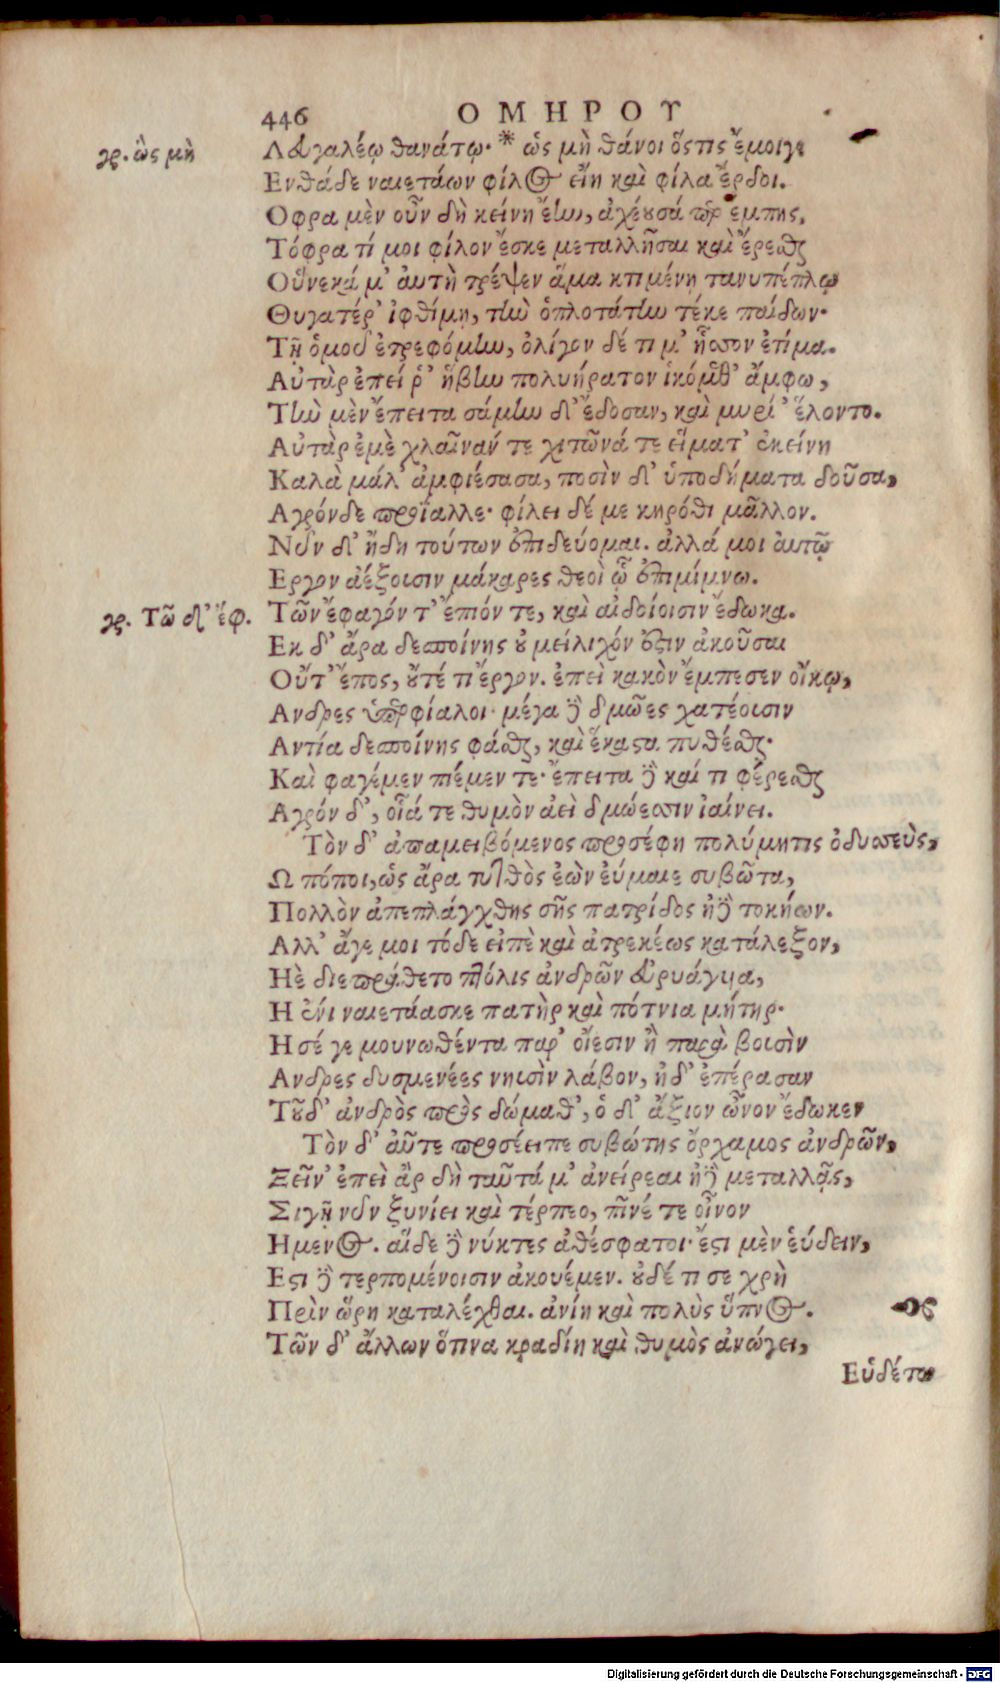 446 ΟΜΗΡΟΥ
γρ. ὣς μὴ
Λευγαλέῳ θανάτῳ· * ὡς μὴ θάνοι ὅςτις ἔμοιγε
Ενθάδε ναιετάων φίλος εἴη καὶ φίλα ἔρδοι.
Οφρα μὲν οὖν δὴ κείνη ἔην, ἀχέουσά περ ἔμπης,
Τόφρα τί μοι φίλον ἔσκε μεταλλῆσαι καὶ ἔρεσθαι
Οὕνεκά μ' ἀυτὴ τρέψεν ἅμα κτιμένη τανυπέπλῳ
Θυγατέρ' ἰφθίμῃ, τὴν ὁπλοτάτην τέκε παίδων·
Τῇ ὁμοῦ ἐτρεφόμην, ὀλίγον δέ τι μ' ἧσσον ἐτίμα.
Αὐτὰρ ἐπεί ῥ' ἥβην πολυήρατον ἱκόμεθ' ἄμφω,
Τὴν μὲν ἔπειτα σάμην δ' ἔδοσαν, καὶ μυρί' ἕλοντο.
Αὐτὰρ ἐμὲ χλαῖνάν τε χιτῶνά τε εἵματ' ἐκείνη
Καλὰ μάλ' ἀμφιέσασα, ποσὶν δ' ὑποδήματα δοῦσα,
Αγρόνδε προΐαλλε· φίλει δέ με κηρόθι μᾶλλον.
Νῦν δ' ἤδη τούτων ἐπιδεύομαι. ἀλλά μοι ἀυτῷ
Εργον ἀέξοισιν μάκαρες θεοὶ ᾧ ἐπιμίμνω.
γρ. Τῶ δ' ἔφ.
Τῶν ἔφαγόν τ' ἔπιόν τε, καὶ αἰδοίοισιν ἔδωκα.
Εκ δ' ἄρα δεσποίνης οὐ μείλιχόν ἐστιν ἀκοῦσαι
Οὔτ' ἔπος, οὔτέ τι ἔργον. ἐπεὶ κακὸν ἔμπεσεν οἴκῳ,
Ανδρες ὑπερφίαλοι· μέγα δὲ δμῶες χατέοισιν
Αντία δεσποίνης φάσθαι, καὶ ἕκαστα πυθέσθαι·
Καὶ φαγέμεν πιέμεν τε· ἔπειτα δὲ καί τι φέρεσθαι
Αγρόν δ', οἷά τε θυμὸν ἀεὶ δμώεσσιν ἰαίνει.
Τὸν δ' ἀπαμειβόμενος προσέφη πολύμητις ὀδυσσεὺς,
Ω πόποι, ὡς ἄρα τυτθὸς ἐὼν εὔμαιε συβῶτα,
Πολλὸν ἀπεπλάγχθης σῆς πατρίδος ἠδὲ τοκήων.
Αλλ' ἄγε μοι τόδε εἰπὲ καὶ ἀτρεκέως κατάλεξον,
Ηὲ διεπράθετο πτόλις ἀνδρῶν εὐρυάγυια,
Η ἐνι ναιετάασκε πατὴρ καὶ πότνια μήτηρ·
Η σέ γε μουνωθέντα παρ' οἴεσιν ἢ παρὰ βουσὶν
Ανδρες δυσμενέες νηυσὶν λάβον, ἠδ' ἐπέρασαν
Τοῦδ' ἀνδρὸς πρὸς δώμαθ', ὁ δ' ἄξιον ὦνον ἔδωκεν
Τὸν δ' ἀῦτε προσέειπε συβώτης ὄρχαμος ἀνδρῶν,
Ξεῖν' ἐπεὶ ἂρ δὴ ταῦτά μ' ἀνείρεαι ἠδὲ μεταλλᾷς,
Σιγῇ νῦν ξυνίει καὶ τέρπεο, πῖνέ τε οἶνον
Ημενος. αἵδε δὲ νύκτες ἀθέσφατοι· ἔστι μὲν ἑύδειν,
Εστι δὲ τερπομένοισιν ἀκουέμεν. οὐδέ τι σε χρὴ
Πρὶν ὥρη καταλέχθαι. ἀνίη καὶ πολὺς ὕπνος.
Τῶν δ' ἄλλων ὅτινα κραδίη καὶ θυμὸς ἀνώγει,
Εὑδέτω
Digitalisierung gefördert durch die Deutsche Forschungsgemeinschaft - DFG